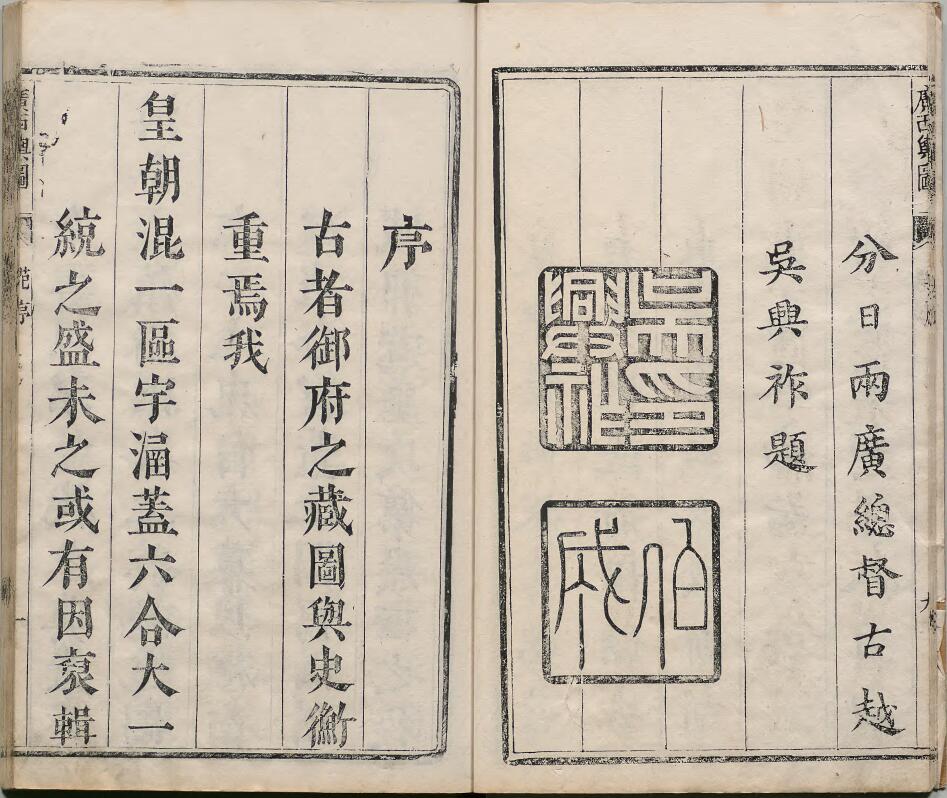 分日兩廣總督古越
吳興祚題
吳興祚印
伯成
序
古者御府之藏圖與史衡
重焉我
皇朝混一區宇涵蓋六合大一
統之盛未之或有因裒輯